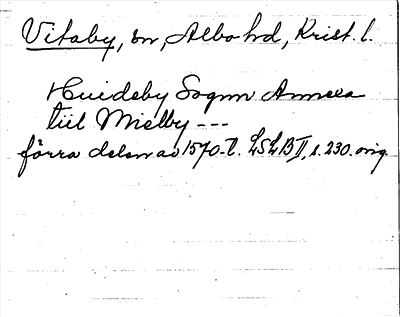 Vitaby, sn, Albo hd, Krist. l.
Huideby Sognn Annexa
tiil Mielby ---
förra delen av 1570-t. LSLB II, s. 230. orig.